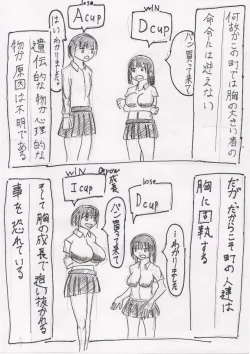 何故かこの町では胸の大きい者の
命令には逆えない
WIN
Dcup
パン買って来て
lose
Acup
はい、わかりました。
遺伝的な物か心理的な
物か原因は不明である
だが、だからこそ町の人達は
胸に固執する
lose
Dcup
…わかりました
grow
成長
WIN
Icup
パン買って来て
そして胸の成長で追い抜かれる
事を恐れている